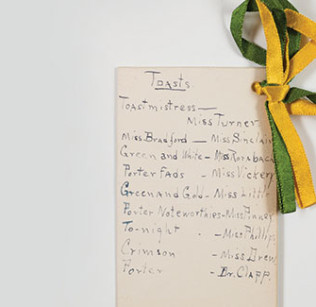 Toasts
Toastmistress —
Miss Turner
Miss Bradford — Miss Sinclair
Green and White - Miss
Porter Fads - Miss Vickery
Green and Gold - Miss Little
Porter Noteworthies - Miss
To-night - Miss Phillips
Crimson - Miss Drew
Porter - Dr. Clapp